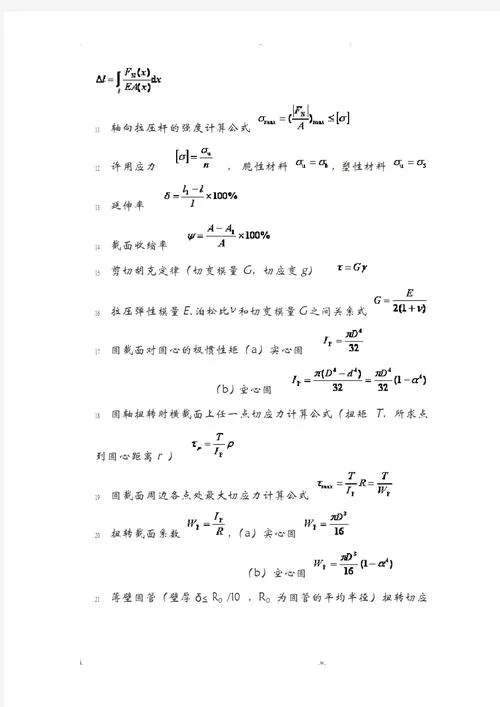 Δl = ∫_l F_N(x)/EA(x) dx
11 轴向拉压杆的强度计算公式 σ_max = (|F_N|/A)_max ≤ [σ]
12 许用应力 [σ] = σ_u/n ， 脆性材料 σ_u = σ_b ，塑性材料 σ_u = σ_S
13 延伸率 δ = (l_1 − l)/l × 100%
14 截面收缩率 ψ = (A − A_1)/A × 100%
15 剪切胡克定律（切变模量 G，切应变 g ） τ = Gγ
16 拉压弹性模量 E、泊松比ν和切变模量 G 之间关系式 G = E/2(1+ν)
17 圆截面对圆心的极惯性矩（a）实心圆 I_P = πD^4/32
（b）空心圆 I_P = π(D^4 − d^4)/32 = πD^4/32 (1 − α^4)
18 圆轴扭转时横截面上任一点切应力计算公式（扭矩 T，所求点
到圆心距离 r ） τ_ρ = T/I_P ρ
19 圆截面周边各点处最大切应力计算公式 τ_max = T/I_P R = T/W_P
20 扭转截面系数 W_P = I_P/R ，（a）实心圆 W_P = πD^3/16
（b）空心圆 W_P = πD^3/16 (1 − α^4)
21 薄壁圆管（壁厚 δ≤ R_0 /10 ，R_0 为圆管的平均半径）扭转切应
i. .w.